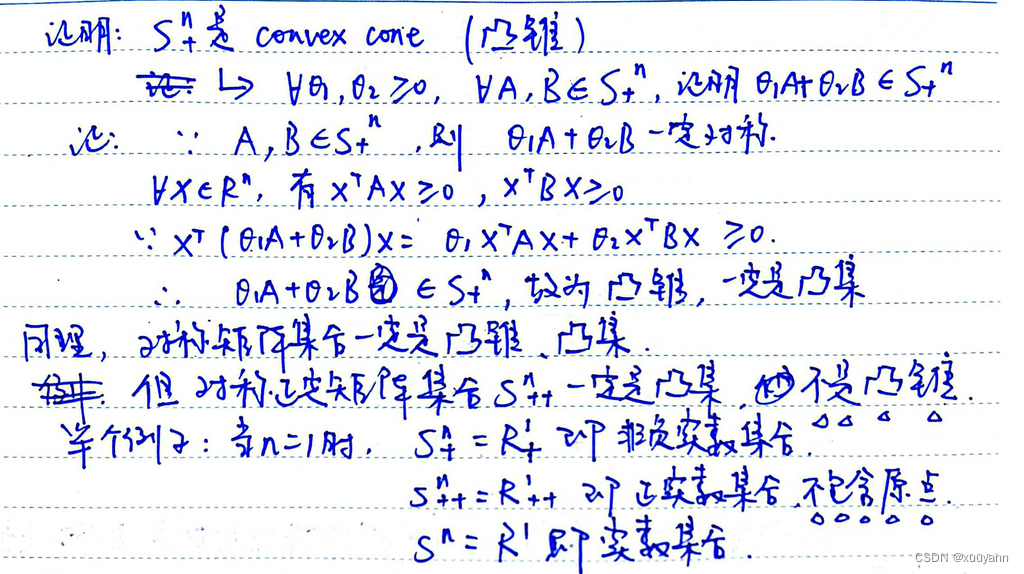 证明: S₊ⁿ是 convex cone (凸锥)
↳ ∀θ₁,θ₂≥0, ∀A,B∈S₊ⁿ, 证明 θ₁A+θ₂B∈S₊ⁿ
证: ∵ A,B∈S₊ⁿ, 则 θ₁A+θ₂B一定对称.
∀X∈Rⁿ, 有 XᵀAX≥0, XᵀBX≥0
∵ Xᵀ(θ₁A+θ₂B)X= θ₁XᵀAX+θ₂XᵀBX ≥0.
∴ θ₁A+θ₂B ∈S₊ⁿ, 故为凸锥, 一定是凸集
同理, 对称矩阵集合一定是凸锥、凸集.
但对称正定矩阵集合 S₊₊ⁿ 一定是凸集, 不是凸锥.
举个例子: 当n=1时, S₊ⁿ=R₊¹ 即非负实数集合.
S₊₊ⁿ=R₊₊¹ 即正实数集合,不包含原点.
Sⁿ=R¹ 即实数集合.
CSDN @xuuyann